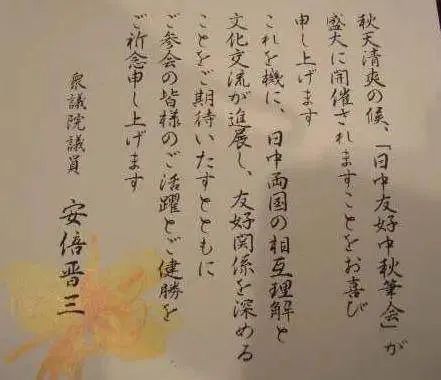 秋天清爽の候、「日中友好中秋筆会」が
盛大に開催されますことをお喜び
申し上げます
これを機に、日中両国の相互理解と
文化交流が進展し、友好関係を深める
ことをご期待いたすとともに
ご参会の皆様のご活躍とご健勝を
ご祈念申し上げます
衆議院議員 安倍晋三